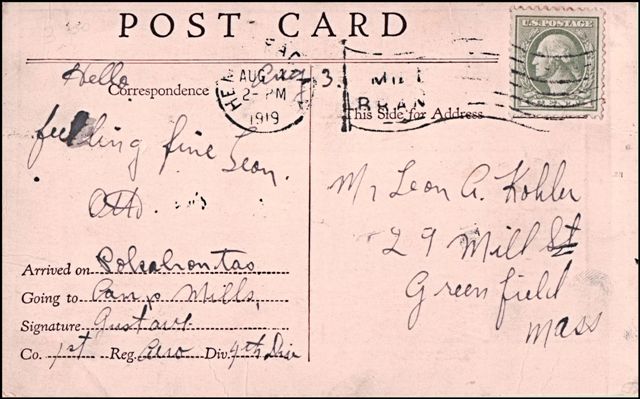 POST CARD
U.S. POSTAGE
Hello Aug 3.
Correspondence
AUG
2- PM
1919
This Side for Address
feeling fine Leon.
Otto.
Mr Leon A. Kohler
29 Mill St
Greenfield
Mass
Arrived on Pokahontas,
Going to Camp Mills,
Signature Gustave
Co. 1st Reg. Aero Div. 4th Div